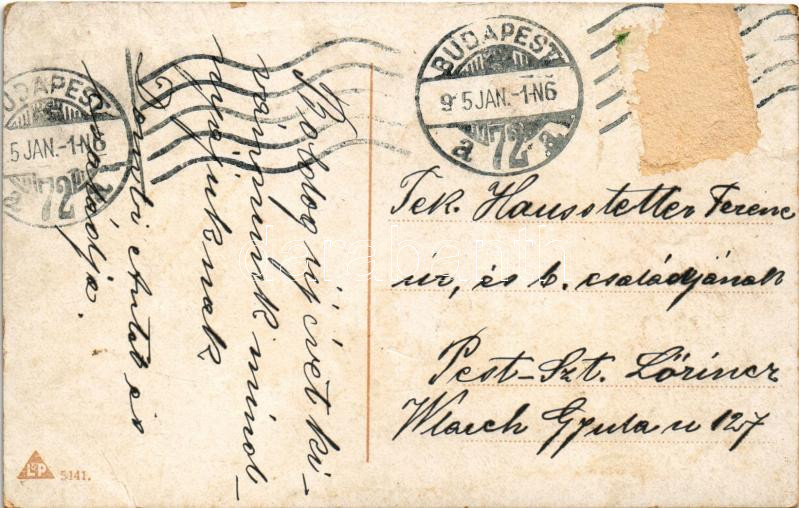 BUDAPEST
9 5 JAN.-1-N6
a 72 a
BUDAPEST
5 JAN.-1-N6
72
Boldog új évet ki-
vánunk mind-
nyájuknak
Dombi Antal és
családja.
Tek. Hausstetter Ferenc
úr, és b. családjának
Pest-Szt. Lőrincz
Wlasch Gyula u 127
L&P
5141.
darabanth